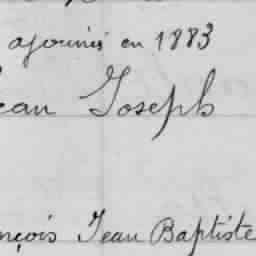 ajournés en 1883
ean Joseph
nçois Jean Baptiste